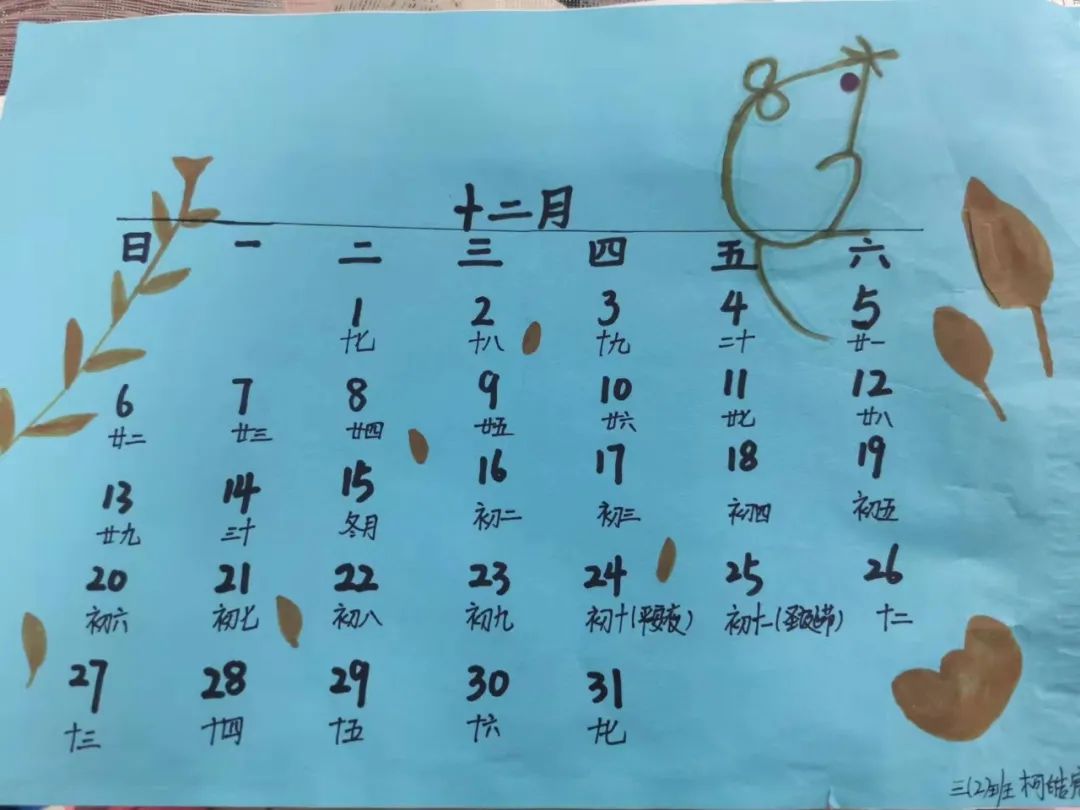 十二月
日 一 二 三 四 五 六
1 2 3 4 5
十七 十八 十九 二十 廿一
6 7 8 9 10 11 12
廿二 廿三 廿四 廿五 廿六 廿七 廿八
13 14 15 16 17 18 19
廿九 三十 冬月 初二 初三 初四 初五
20 21 22 23 24 25 26
初六 初七 初八 初九 初十(平安夜) 初十一(圣诞节) 十二
27 28 29 30 31
十三 十四 十五 十六 十七
三(2)班 柯皓